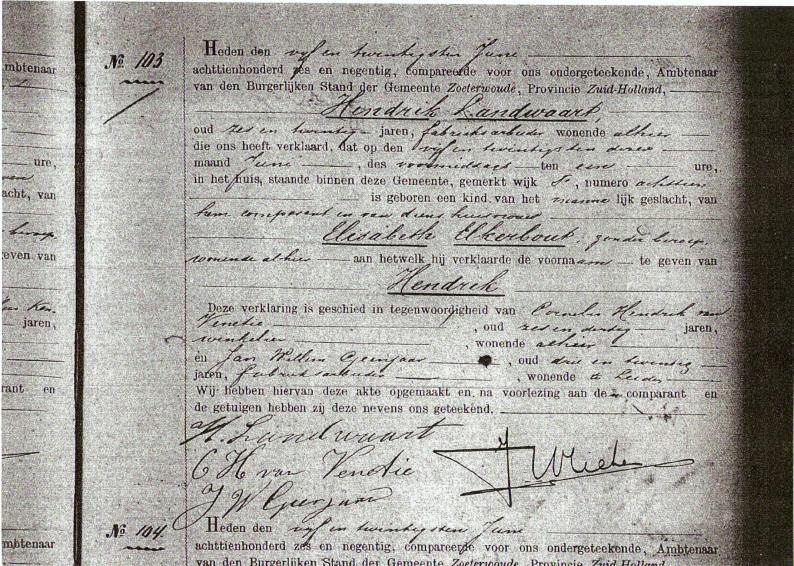 № 103
Heden den vyf en twintigsten Juni
achttienhonderd zes en negentig, compareerde voor ons ondergeteekende, Ambtenaar
van den Burgerlijken Stand der Gemeente Zoeterwoude, Provincie Zuid-Holland,
Hendrik Landwaart,
oud zes en twintig jaren, fabrieksarbeider wonende alhier
die ons heeft verklaard, dat op den vyf en twintigsten dezer
maand Juni, des voormiddags ten een ure,
in het huis, staande binnen deze Gemeente, gemerkt wijk F, numero achttien
is geboren een kind van het manne lijk geslacht, van
hem comparant en van diens huisvrouw
Elisabeth Elkerbout, zonder beroep,
wonende alhier aan hetwelk hij verklaarde de voornaam te geven van
Hendrik
Deze verklaring is geschied in tegenwoordigheid van Cornelis Hendrik van
Venetie, oud zes en dertig jaren,
winkelier, wonende alhier
en Jan Willem, oud drie en twintig
jaren, fabrieksarbeider, wonende te Leiden
Wij hebben hiervan deze akte opgemaakt en na voorlezing aan de comparant en
de getuigen hebben zij deze nevens ons geteekend.
H. Landwaart
C H van Venetie
J W
№ 104
Heden den vyf en twintigsten Juni
achttienhonderd zes en negentig, compareerde voor ons ondergeteekende, Ambtenaar
van den Burgerlijken Stand der Gemeente Zoeterwoude, Provincie Zuid-Holland
mbtenaar
ure,
acht, van
beroep
even van
jaren,
rant en
mbtenaar